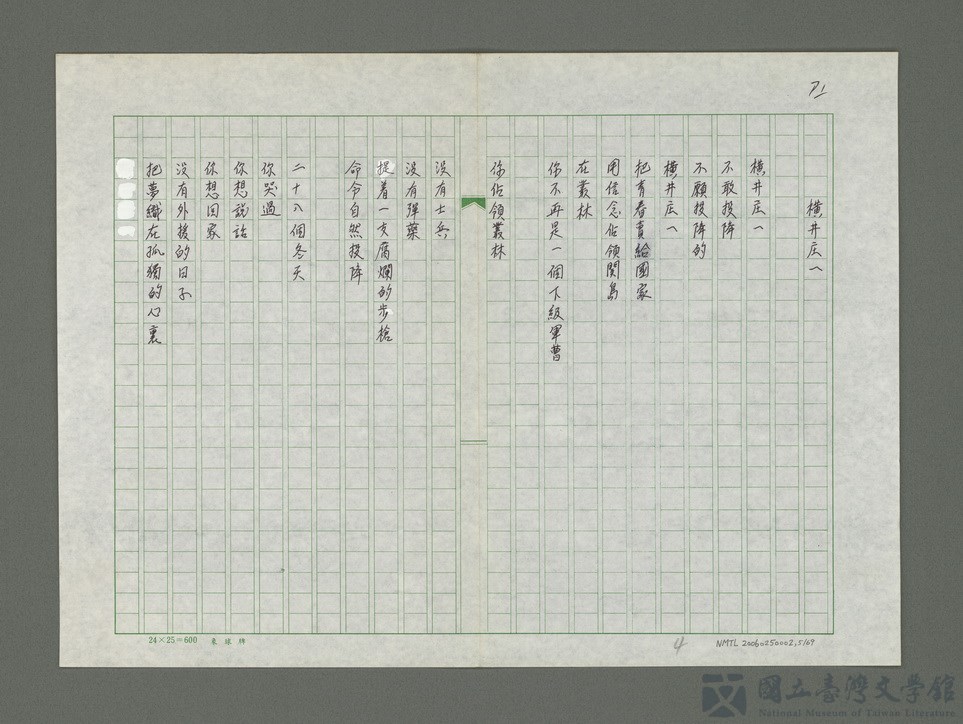 71
橫井庄一
橫井庄一
不敢投降
不願投降的
橫井庄一
把青春賣給國家
用信念佔領関島
在叢林
你不再是一個下級軍曹
你佔領叢林
沒有士兵
沒有彈藥
提着一支腐爛的步槍
命令自然投降
二十八個冬天
你哭過
你想說話
你想回家
沒有外援的日子
把夢織在孤獨的心裏
24×25=600
4
NMTL 20060250002,5/69
國立臺灣文學館
National Museum of Taiwan Literature